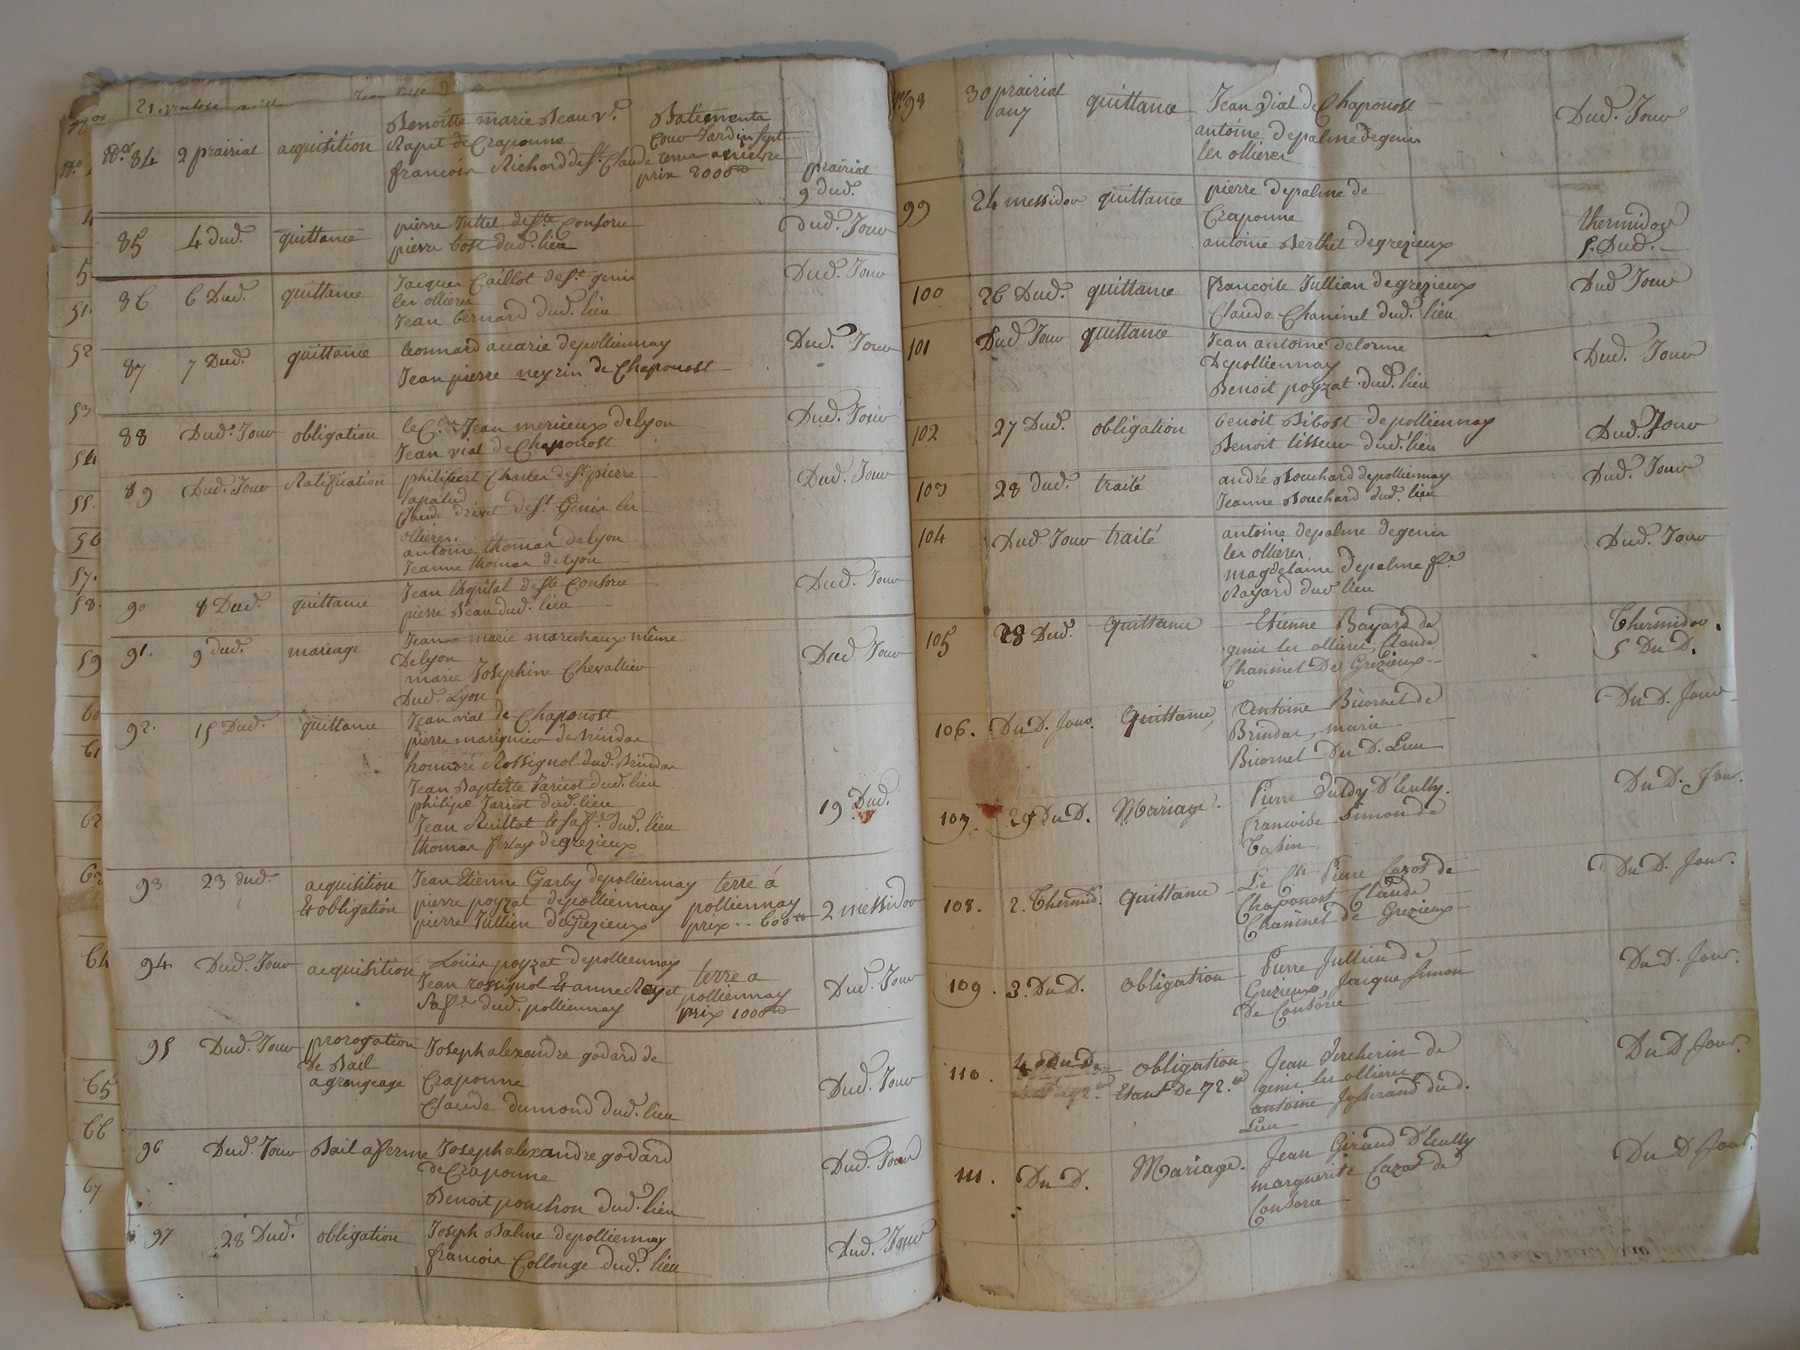 21. ventose
N.os 84 2 prairial acquisition Benoitte marie Beau v.e
Rapet de Craponne
francois Richard de St. Claude
Batiments
Cour Jardin sept
terre
prix 2000
prairial
9 dud.
85 4 dud. quittance pierre Juttet de Ste Consorce
pierre bost dud. lieu
dud. Jour
86 6 Dud. quittance Jacques Caillot de St. genis
les ollieres
Jean bernard dud. lieu
Dud. Jour
87 7 Dud. quittance leonnard accarie depolliennay
Jean pierre neyrin de Chaponost
Dud. Jour
88 Dud. Jour obligation le C.en Jean merieux de lyon
Jean vial de Chaponost
Dud. Jour
89 Dud. Jour Ratification philibert Charles de St. pierre
lapalud
Claude drivet de St. Genis les
ollieres.
antoine thomas de lyon
Jeanne thomas de lyon
Dud. Jour
90 8 Dud. quittance Jean thopital de Ste Consorce
pierre Beau dud. lieu
Dud. Jour
91. 9 dud. mariage Jean marie marechaux même
De lyon
marie Josephine Chevallier
Dud. Lyon
Dud. Jour
92. 15 Dud. quittance Jean vial de Chaponost
pierre marignier de brindas
honnoré Rossignol dud. Brindas
Jean Baptiste Jaricot dud. lieu
philipe Jaricot dud. lieu
Jean Ruillat et sa f.e dud. lieu
thomas ferlay de grezieux
19 Dud.
93 23 dud. acquisition
et obligation
Jean Etienne Garby depolliennay
pierre poyzat depolliennay
pierre Jullien de Grezieux
terre á
polliennay
prix .. 600
2 messidor
94 Dud. Jour acquisition Louis poyzat depolliennay
Jean rossignol et anne Reyet
sa f.e dud. polliennay
terre a
polliennay
prix 1000
Dud. Jour
95 Dud. Jour prorogation
de Bail
a grangeage
Joseph alexandre godard de
Craponne
Claude dumond dud. lieu
Dud. Jour
96 Dud. Jour Bail a ferme Joseph alexandre godard
de Craponne
Benoit ponchon dud. lieu
Dud. Jour
97 28 Dud. obligation Joseph Balme depolliennay
francois Collonge dud. lieu
Dud. Jour
98 30 prairial
an 7
quittance Jean vial de Chaponost
antoine depalme de genis
les ollieres
Dud. Jour
99 24 messidor quittance pierre depalme de
Craponne
antoine Berthet de grezieux
thermidor
5. Dud.
100 26 Dud. quittance francoise Jullian de grezieux
Claude Chaninel dud. lieu
Dud Jour
101 Dud Jour quittance Jean antoine delorme
Depolliennay
Benoit poyzat dud. lieu
Dud. Jour
102 27 Dud. obligation benoit Bibost depolliennay
Benoit tisseur dud. lieu
Dud. Jour
103 28 dud. traité andré Bouchard depolliennay
Jeanne Bouchard dud. lieu
Dud. Jour
104 Dud Jour traité antoine depalme de genis
les ollieres.
magdelaine depalme f.e
Rayard dud. lieu
Dud. Jour
105 28 Dud. Quittance Etienne Bayard de
genis les ollieres, Claude
Chaninel De Grezieux
Thermidor.
5 Du D.
106. Du D. Jour. Quittance, Antoine Bicornet de
Brindas, marie
Bicornet Du D. Lieu
Du D. Jour
107. 29 Du D. Mariage. Pierre D'Eculy.
francoise Simon de
Tassin
Du D. Jour.
108. 2. Thermid. Quittance Le Pierre Cazot de
Chaponost Claude
Chaninel de Grezieux
Du D. Jour.
109. 3. Du D. Obligation Pierre Jullien de
Grezieux, Jacque Simon
de Consorce
Du D. Jour.
110. 4 Du D. Obligation
De 72.
Jean Percherin de
genis les ollieres
antoine Josserand dud.
Lieu
Du D Jour.
111. Du D. Mariage. Jean Giraud D'Eculy
marguerite Cazot de
Consorce
Du D Jour.
51.
52
53
54
55.
56
57.
58.
59
60
61
62
63
64
65
66
67